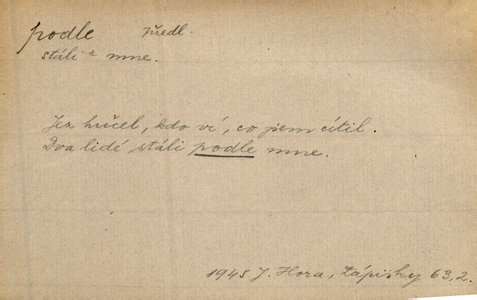 podle předl.
stáli " mne.
Jez hučel, kdo ví, co jsem cítil.
Dva lidé stáli podle mne.
1945 J. Hora, Zápisky 63,2.